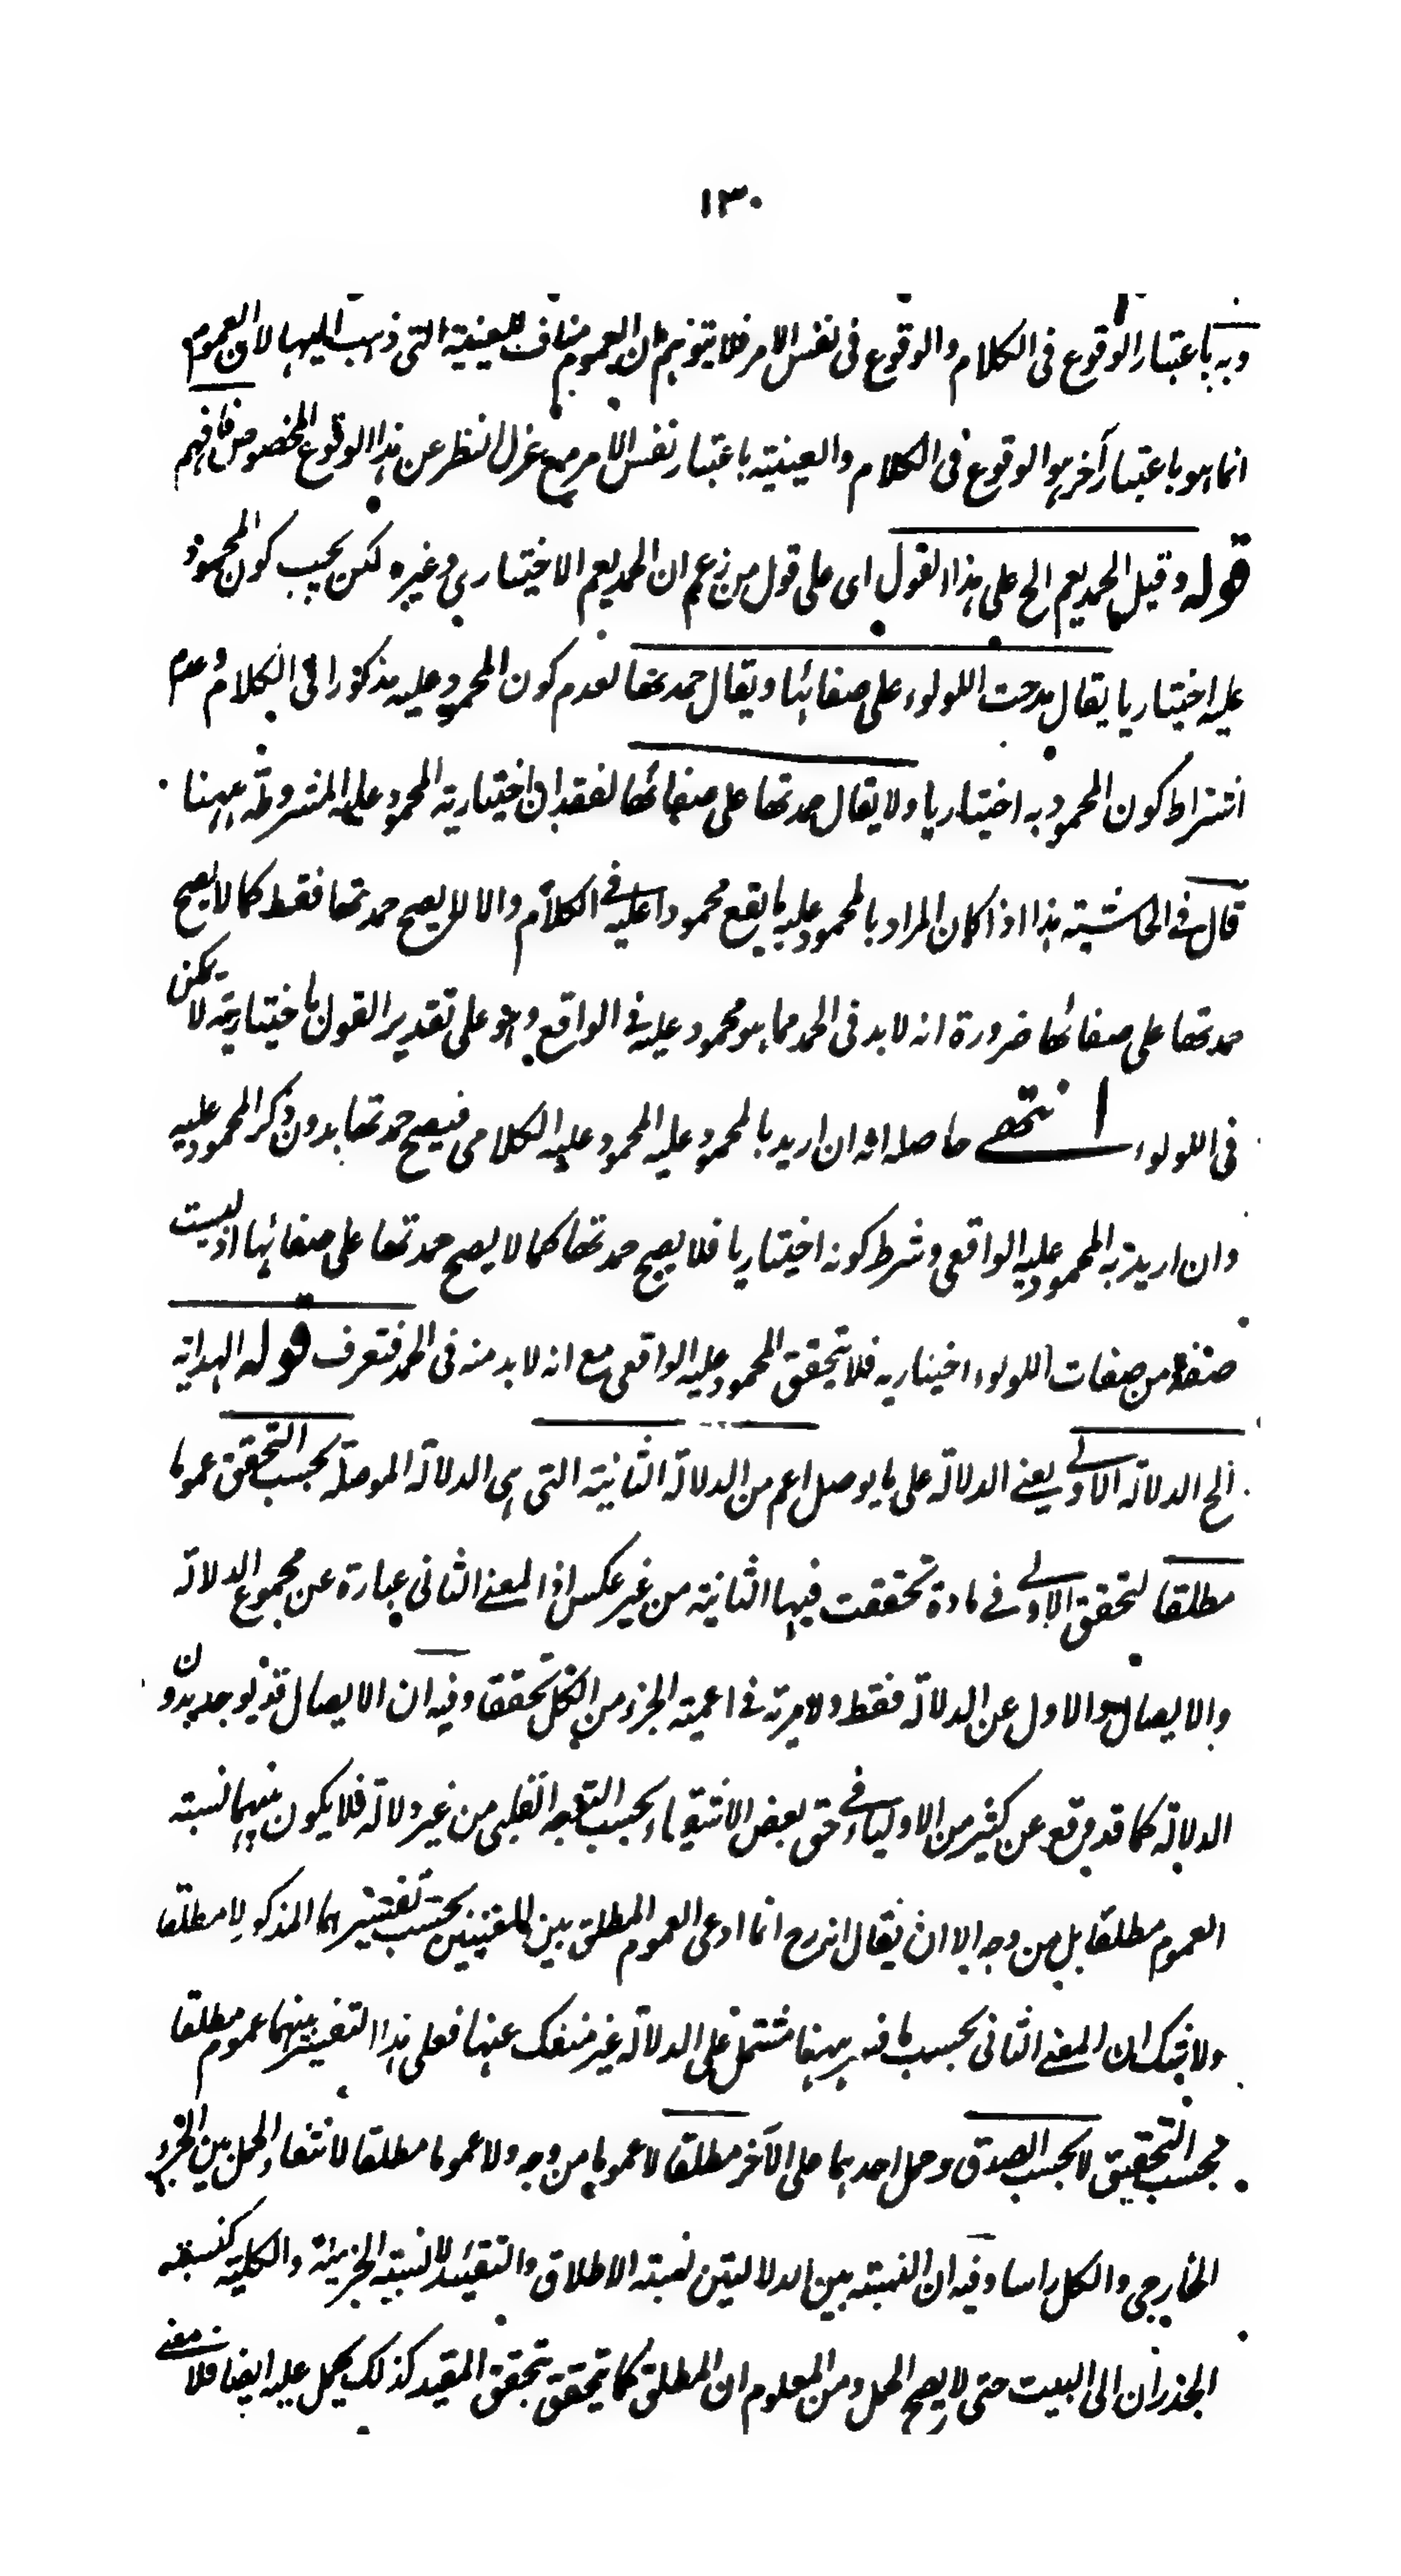 ١٣٠
وبه باعتبار الوقوع فى الكلام والوقوع فى نفس الامر فلا يتوهم ان العموم مناف للعينية التى ذهب اليها لان العموم
انما هو باعتبار آخر هو الوقوع فى الكلام والعينية باعتبار نفس الامر مع عزل النظر عن هذا الوقوع المخصوص فافهم
قوله وقيل الحمد يعم الخ على هذا القول اى على قول من زعم ان الحمد يعم الاختيارى وغيره لكن يجب كون المحمود
عليه اختياريا يقال مدحت اللولوء على صفائها ويقال حمدتها لعدم كون المحمود عليه مذكورا فى الكلام وعدم
اشتراط كون المحمود به اختياريا ولا يقال حمدتها على صفائها لفقدان اختيارية المحمود عليه المشروطة ههنا
قال فى الحاشية هذا اذا كان المراد بالمحمود عليه ما يقع محمودا عليه فى الكلام والا لا يصح حمدتها فقط كما لا يصح
حمدتها على صفائها ضرورة انه لا بد فى الحمد مما هو محمود عليه فى الواقع وهو على تقدير القول باختياريته لا يمكن
فى اللولوء انتهى حاصله انه ان اريد بالمحمود عليه المحمود عليه الكلامى فيصح حمدتها بدون ذكر المحمود عليه
وان اريد به المحمود عليه الواقعى وشرط كونه اختياريا فلا يصح حمدتها كما لا يصح حمدتها على صفائها اذ ليست
صفة من صفات اللولوء اختياريه فلا يتحقق المحمود عليه الواقعى مع انه لا بد منه فى الحمد فتعرف قوله الهداية
الخ الدلالة الاولى يعنى الدلالة على ما يوصل اعم من الدلالة الثانية التى هى الدلالة الموصلة بحسب التحقق عموما
مطلقا لتحقق الاولى فى مادة تحققت فيها الثانية من غير عكس اذ المعنى الثانى عبارة عن مجموع الدلالة
والايصال والاول عن الدلالة فقط ولا مرية فى اعمية الجزء من الكل تحققا وفيه ان الايصال قد يوجد بدون
الدلالة كما قد وقع عن كثير من الاولياء فى حق بعض الاشقياء بحسب التوجه القلبى من غير دلالة فلا يكون بينهما نسبة
العموم مطلقا بل من وجه الا ان يقال انه رح انما ادعى العموم المطلق بين المعنيين بحسب تفسيرهما المذكور لا مطلقا
ولا شك ان المعنى الثانى بحسب ما فسر ههنا مشتمل على الدلالة غير منفك عنها فعلى هذا التفسير بينهما عموم مطلقا
بحسب التحقيق لا بحسب الصدق وحمل احدهما على الآخر مطلقا لا عموما من وجه ولا عموما مطلقا لانتفاء الحمل بين الجزء
الخارجى والكل راسا وفيه ان النسبة بين الدلالتين نسبة الاطلاق والتقييد لا نسبة الجزئية والكلية كنسبة
الجدران الى البيت حتى لا يصح الحمل ومن المعلوم ان المطلق كما يتحقق بتحقق المقيد كذلك يحمل عليه ايضا فلا معنى